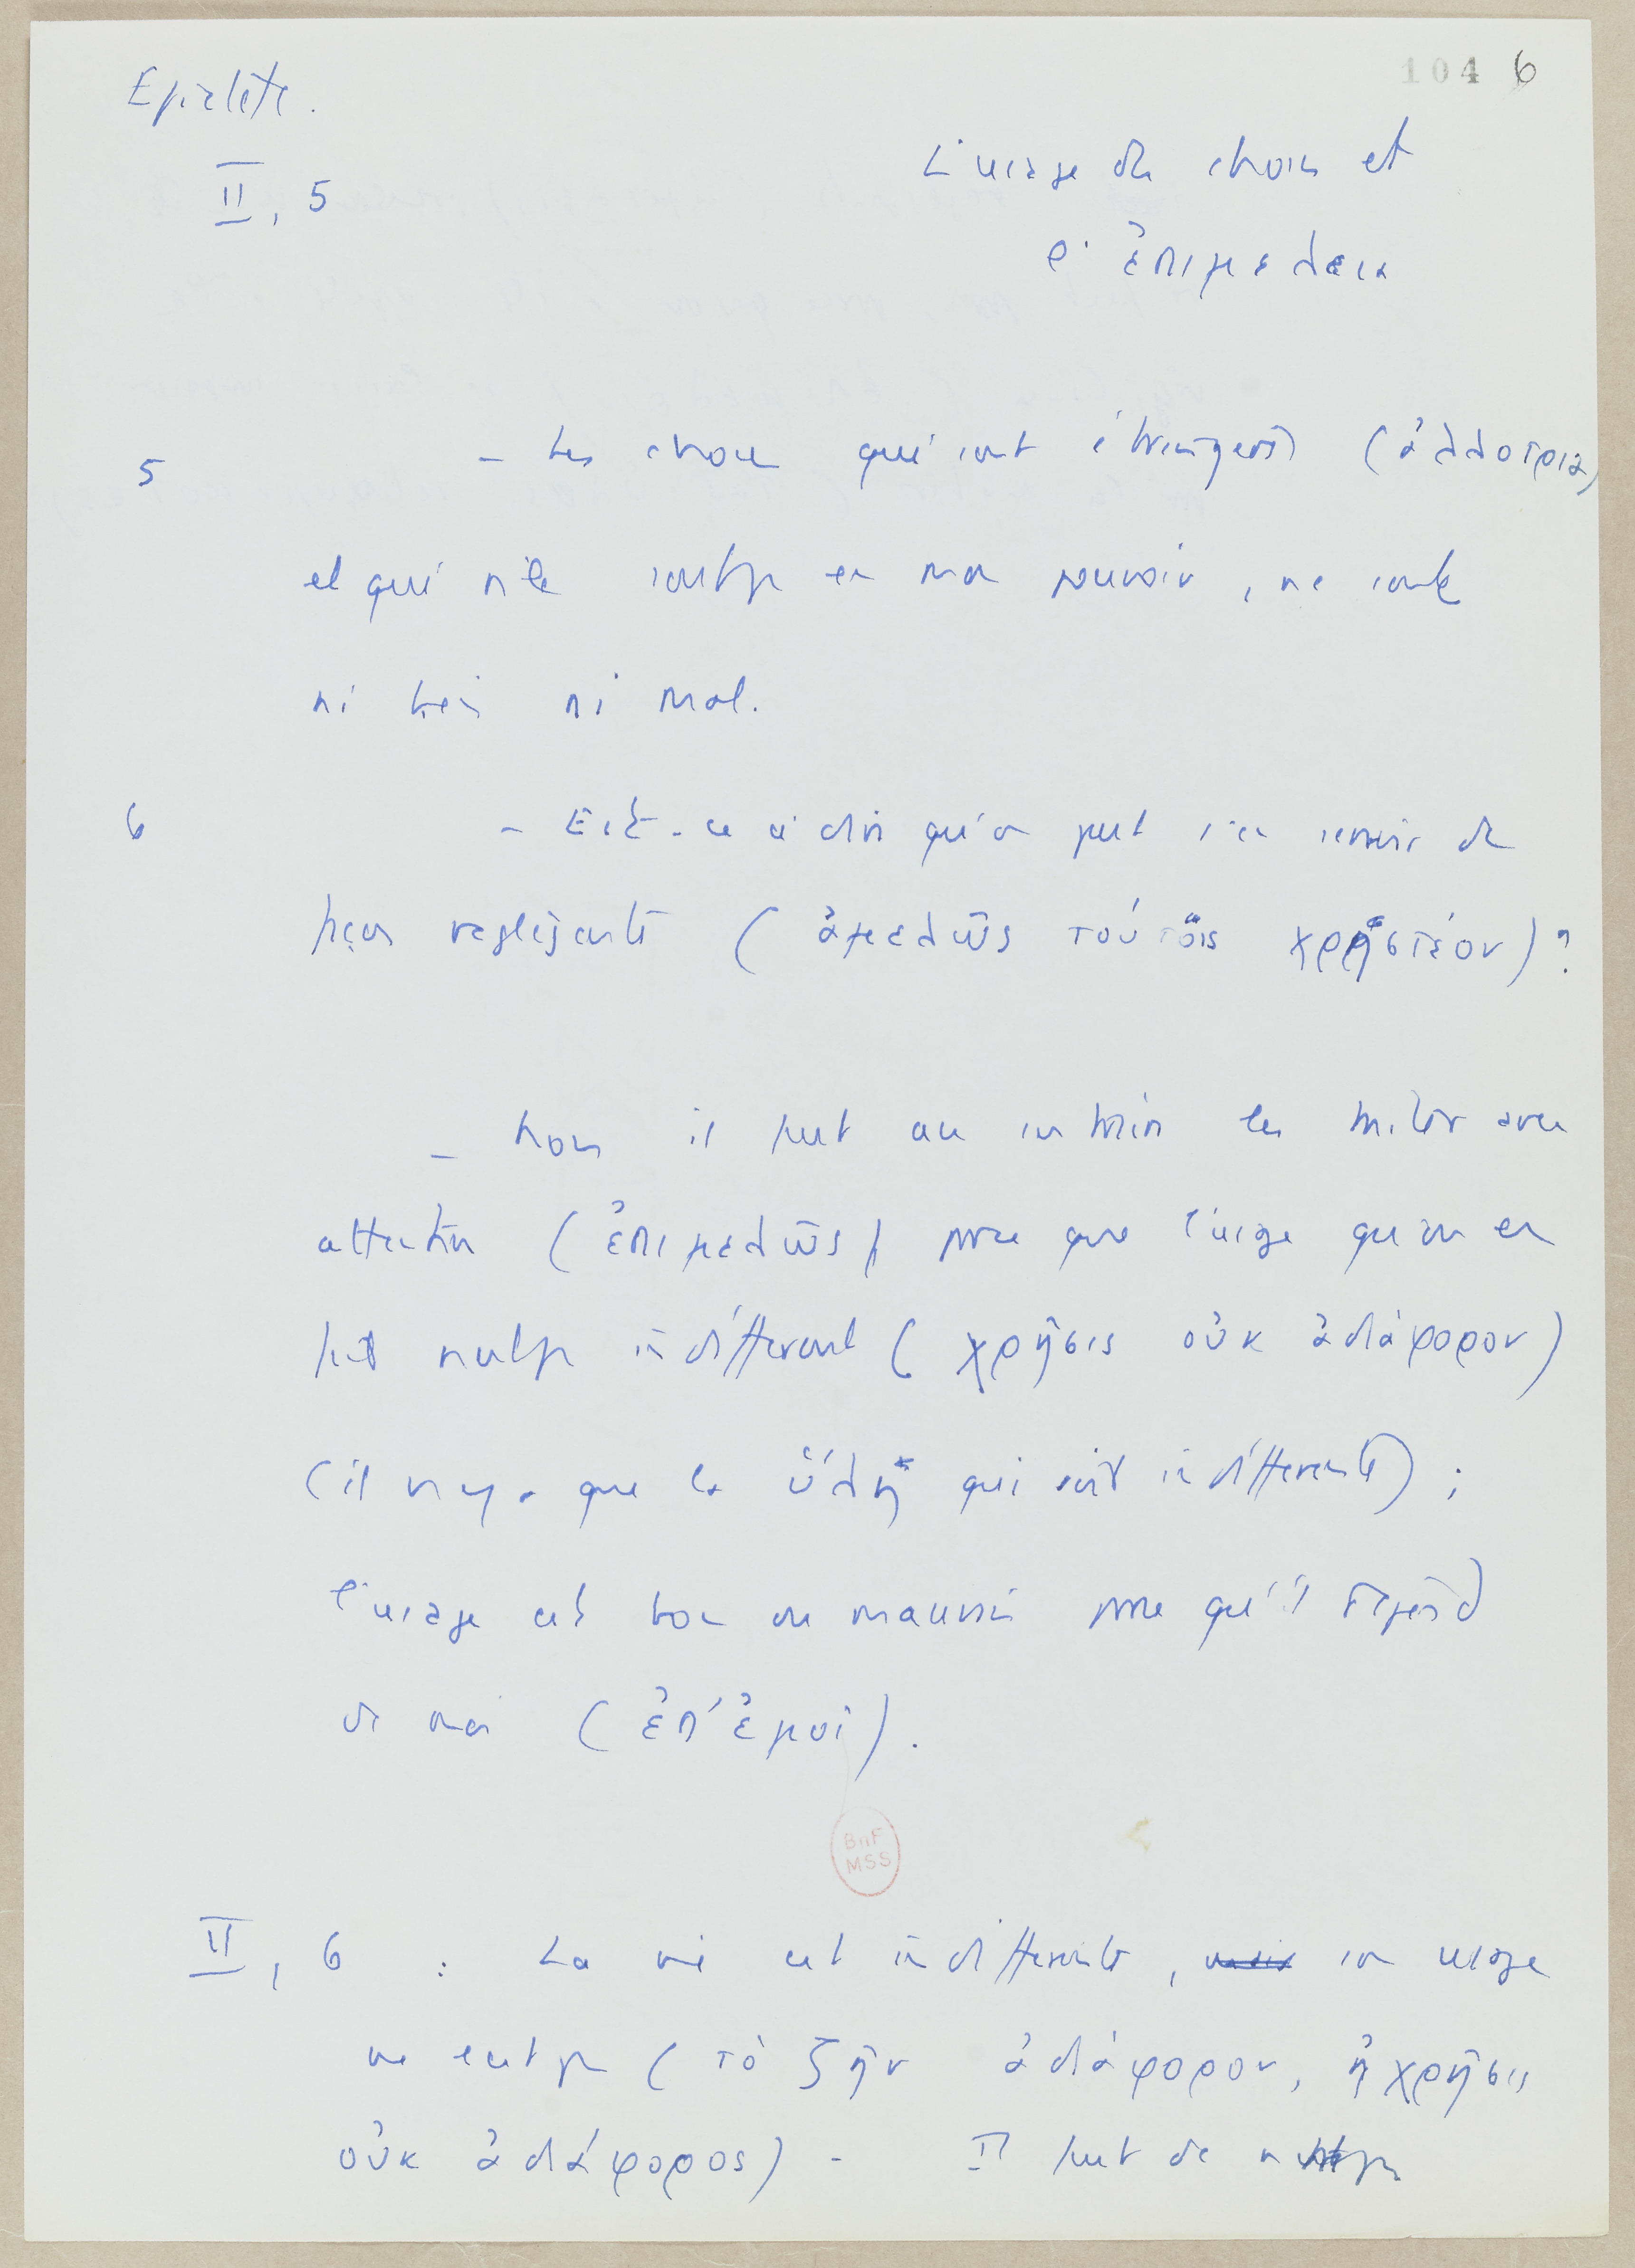 Epictète.
104 6
II, 5
L'usage des choses et
l'ἐπιμελεια
5 - Les choses qui sont étrangères (ἀλλοτρια)
et qui ne sont pas en mon pouvoir, ne sont
ni bien ni mal.
6 - Est-ce à dire qu'on peut s'en servir de
façon négligente (ἀμελῶς τούτοις χρηστέον)?
- Non il faut au contraire les traiter avec
attention (ἐπιμελῶς) parce que l'usage qu'on en
fait n'est pas indifférent (χρῆσις οὐκ ἀδιάφορον)
(il n'y a que la ὕλη qui soit indifférente);
l'usage est bon ou mauvais parce qu'il dépend
de moi (ἐπ' ἐμοί).
BnF
MSS
II, 6 : La vie est indifférente, mais son usage
ne l'est pas (τὸ ζῆν ἀδιάφορον, ἡ χρῆσις
οὐκ ἀδιάφορος) - Il faut de pas